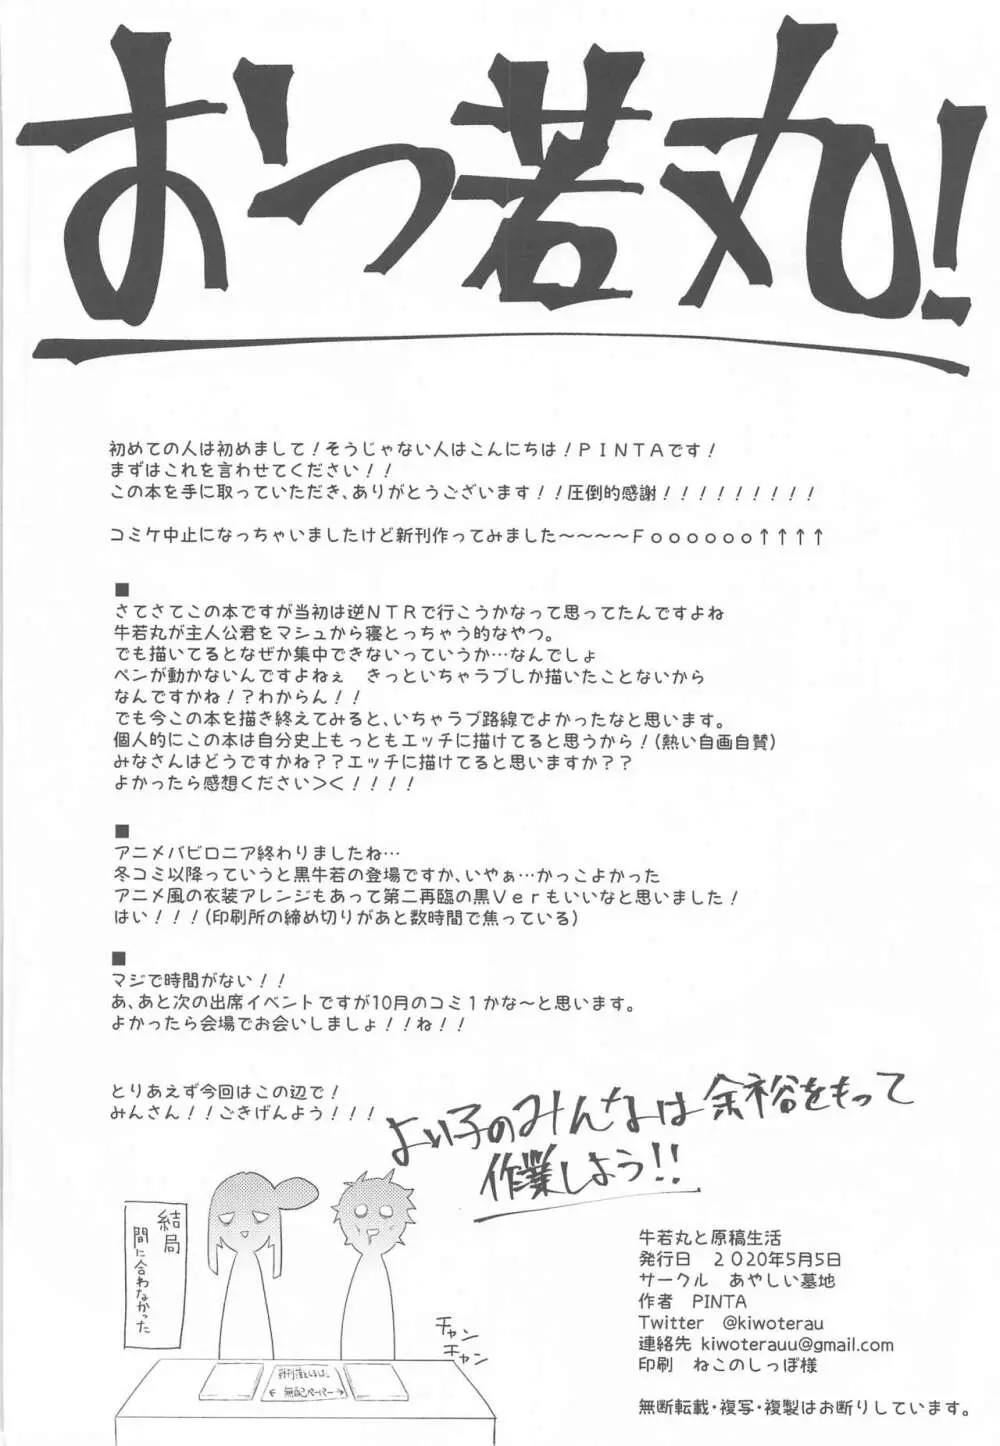 おつ若丸!
初めての人は初めまして！そうじゃない人はこんにちは！PINTAです！
まずはこれを言わせてください！！
この本を手に取っていただき、ありがとうございます！！圧倒的感謝！！！！！！！！！
コミケ中止になっちゃいましたけど新刊作ってみました～～～～Foooooo↑↑↑↑
■
さてさてこの本ですが当初は逆NTRで行こうかなって思ってたんですよね
牛若丸が主人公君をマシュから寝とっちゃう的なやつ。
でも描いてるとなぜか集中できないっていうか…なんでしょ
ペンが動かないんですよねぇ　きっといちゃラブしか描いたことないから
なんですかね！？わからん！！
でも今この本を描き終えてみると、いちゃラブ路線でよかったなと思います。
個人的にこの本は自分史上もっともエッチに描けてると思うから！(熱い自画自賛)
みなさんはどうですかね？？エッチに描けてると思いますか？？
よかったら感想ください＞＜！！！！
■
アニメバビロニア終わりましたね…
冬コミ以降っていうと黒牛若の登場ですか、いやぁ…かっこよかった
アニメ風の衣装アレンジもあって第二再臨の黒Verもいいなと思いました！
はい！！！(印刷所の締め切りがあと数時間で焦っている)
■
マジで時間がない！！
あ、あと次の出席イベントですが10月のコミ1かな～と思います。
よかったら会場でお会いしましょ！！ね！！
とりあえず今回はこの辺で！
みんさん！！ごきげんよう！！！
よい子のみんなは余裕をもって
作業しよう!!
結局
間に合わなかった
チャン
チャン
新刊落としました
←無配ペーパー→
牛若丸と原稿生活
発行日　2020年5月5日
サークル　あやしい墓地
作者　PINTA
Twitter　@kiwoterau
連絡先 kiwoterauu@gmail.com
印刷　ねこのしっぽ様
無断転載・複写・複製はお断りしています。